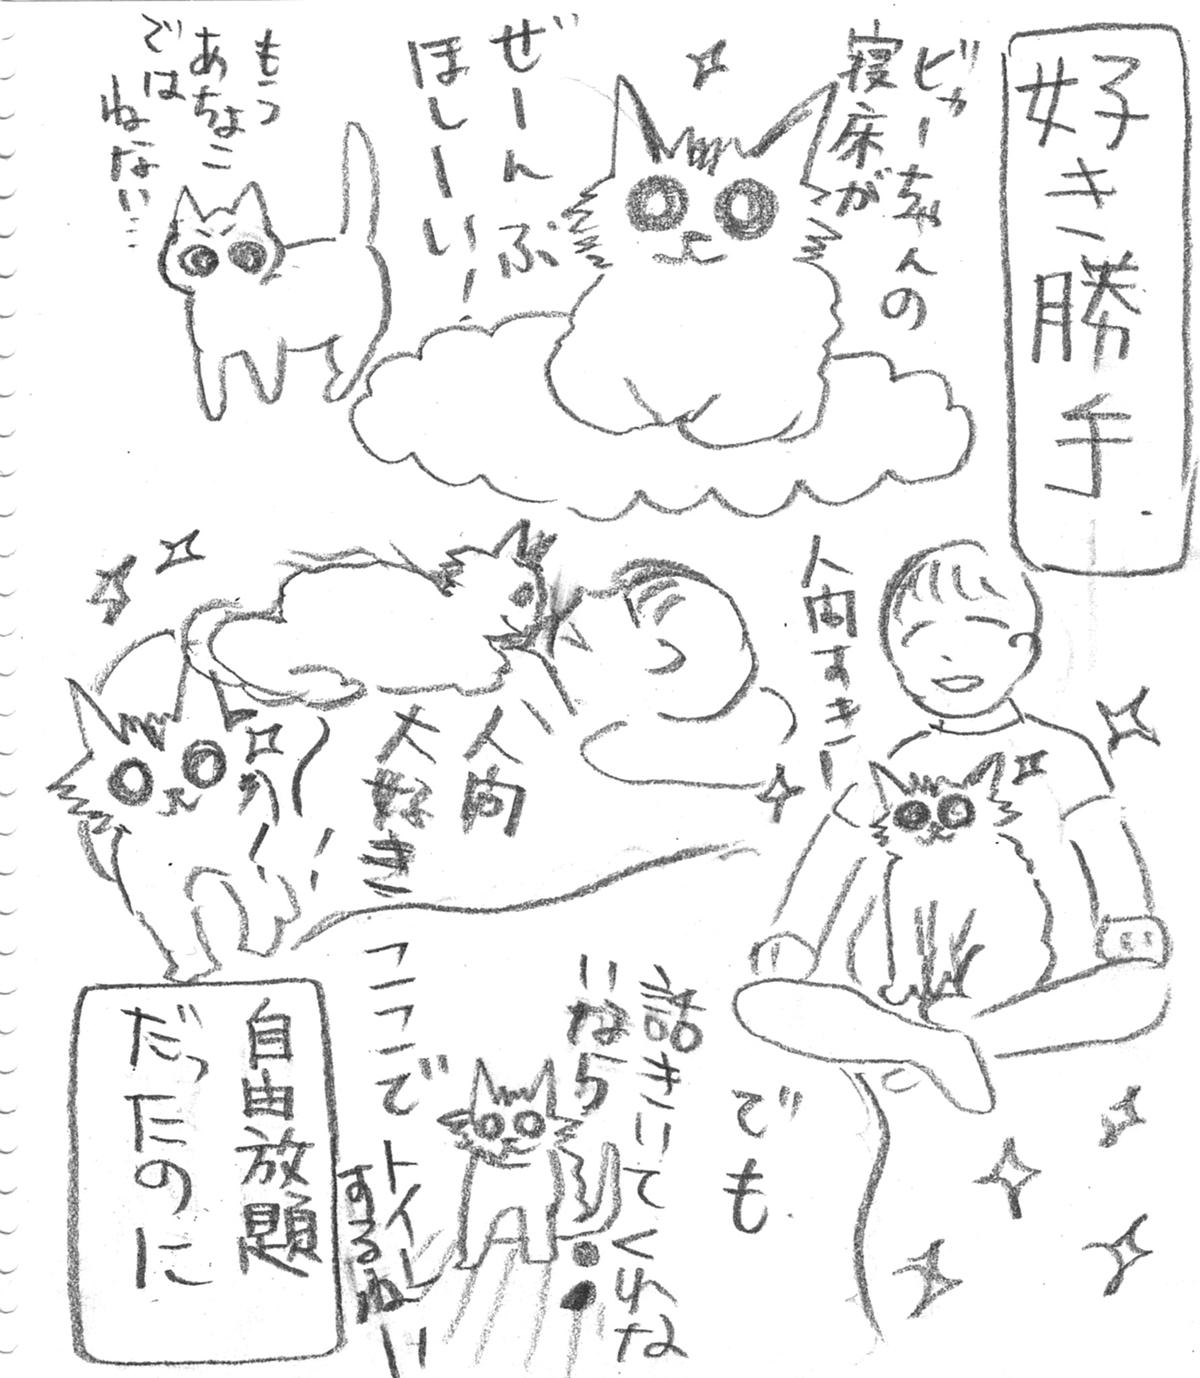 好き勝手
ビャーちゃんの
寝床が
ぜーんぶ
ほしーい!
もう
あちょこ
では
ねない…
人間すきー
人間
大好き
でも
話きいてくれな
いなら
ここで
トイレ
するねい
自由放題
だったのに